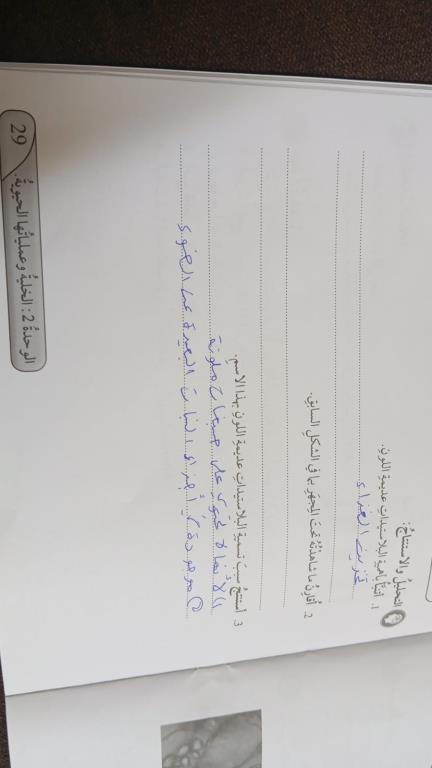 التحليلُ والاستنتاجُ:
1. أتنبَّأُ بأهميةِ البلاستيداتِ عديمةِ اللونِ.
تخزين الغذاء
2. أقارنُ ما شاهدتُهُ تحتَ المِجهَرِ بما في الشكلِ السابقِ.
3. أستنتجُ سببَ تسميةِ البلاستيداتِ عديمةِ اللونِ بهذا الاسمِ.
لأنها لا تحتوي على صبغات ملونة
موجودة في أجزاء النبات البعيدة عن الضوء
الوحدةُ 2: الخليةُ وعملياتُها الحيويةُ.
29